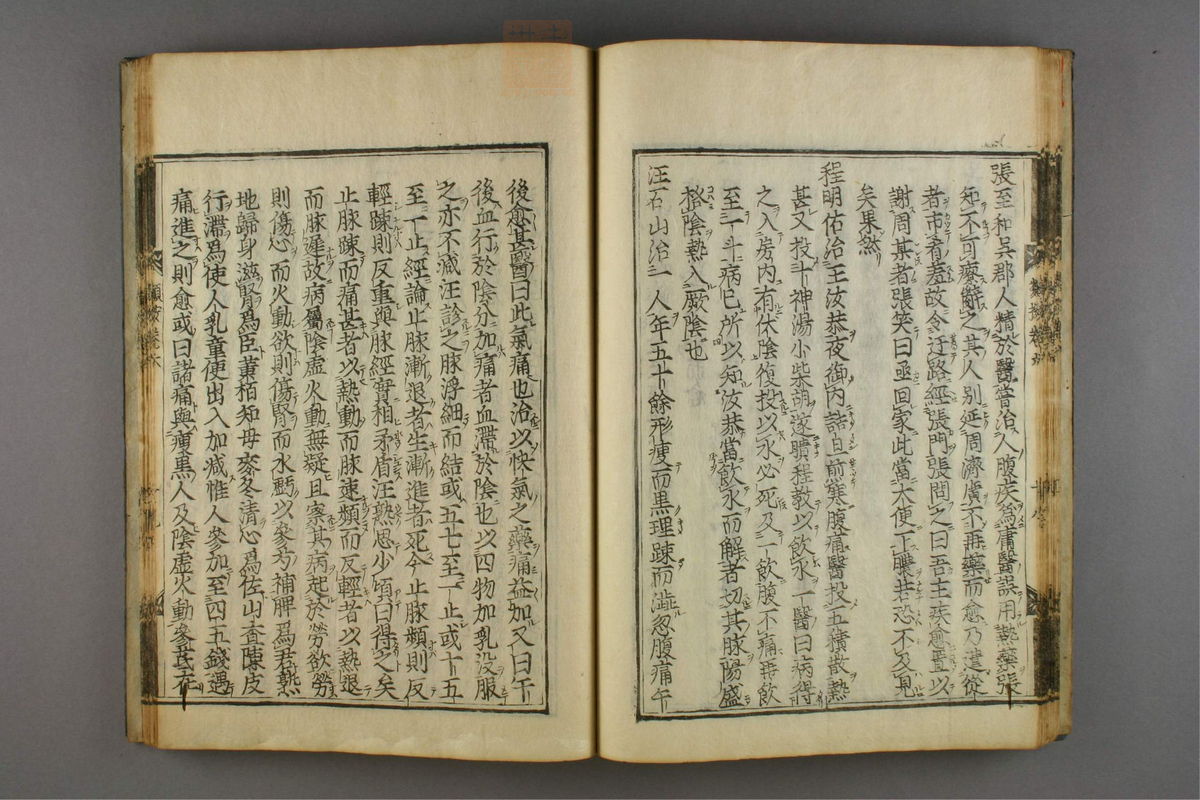 張至和吳郡人精於醫嘗治人腹疾爲庸醫誤用熱藥張
知不可療辭之其人別延周濟廣不再藥而愈乃遣從
者市肴羞故令迂路經張門張問之曰吾主疾愈置以
謝周某者張笑曰亟回家此當大便下膿若恐不及見
矣果然
程明佑治王汝恭夜御内詰旦煎寒腹痛醫投五積散熱
甚又投十神湯小柴胡遂瞶程教以飲水一醫曰病得
之入房内有伏陰復投以水必死及一飲腹不痛再飲
至一斗病已所以知汝恭當飲水而解者切其脉陽盛
格陰熱入厥陰也
汪石山治一人年五十餘形瘦而黒理踈而澁忽腹痛午
後愈甚醫曰此氣痛也治以快氣之藥痛益加又曰午
後血行於陰分加痛者血滯於陰也以四物加乳没服
之亦不减汪診之脉浮細而結或五七至一止或十五
至一止經論止脉漸退者生漸進者死今止脉頻則反
輕踈則反重與脉經實相矛盾汪熟思少頃曰得之矣
止脉踈而痛甚者以熱動而脉速頻而反輕者以熱退
而脉遲故病屬陰虚火動無疑且察其病起於勞欲勞
則傷心而火動欲則傷腎而水虧以參芍補脾爲君熟
地歸身滋腎爲臣黄柏知母麥冬清心爲佐山査陳皮
行滯爲使人乳童便出入加减惟人參加至四五錢遇
痛進之則愈或曰諸痛與瘦黒人及陰虚火動參芪在